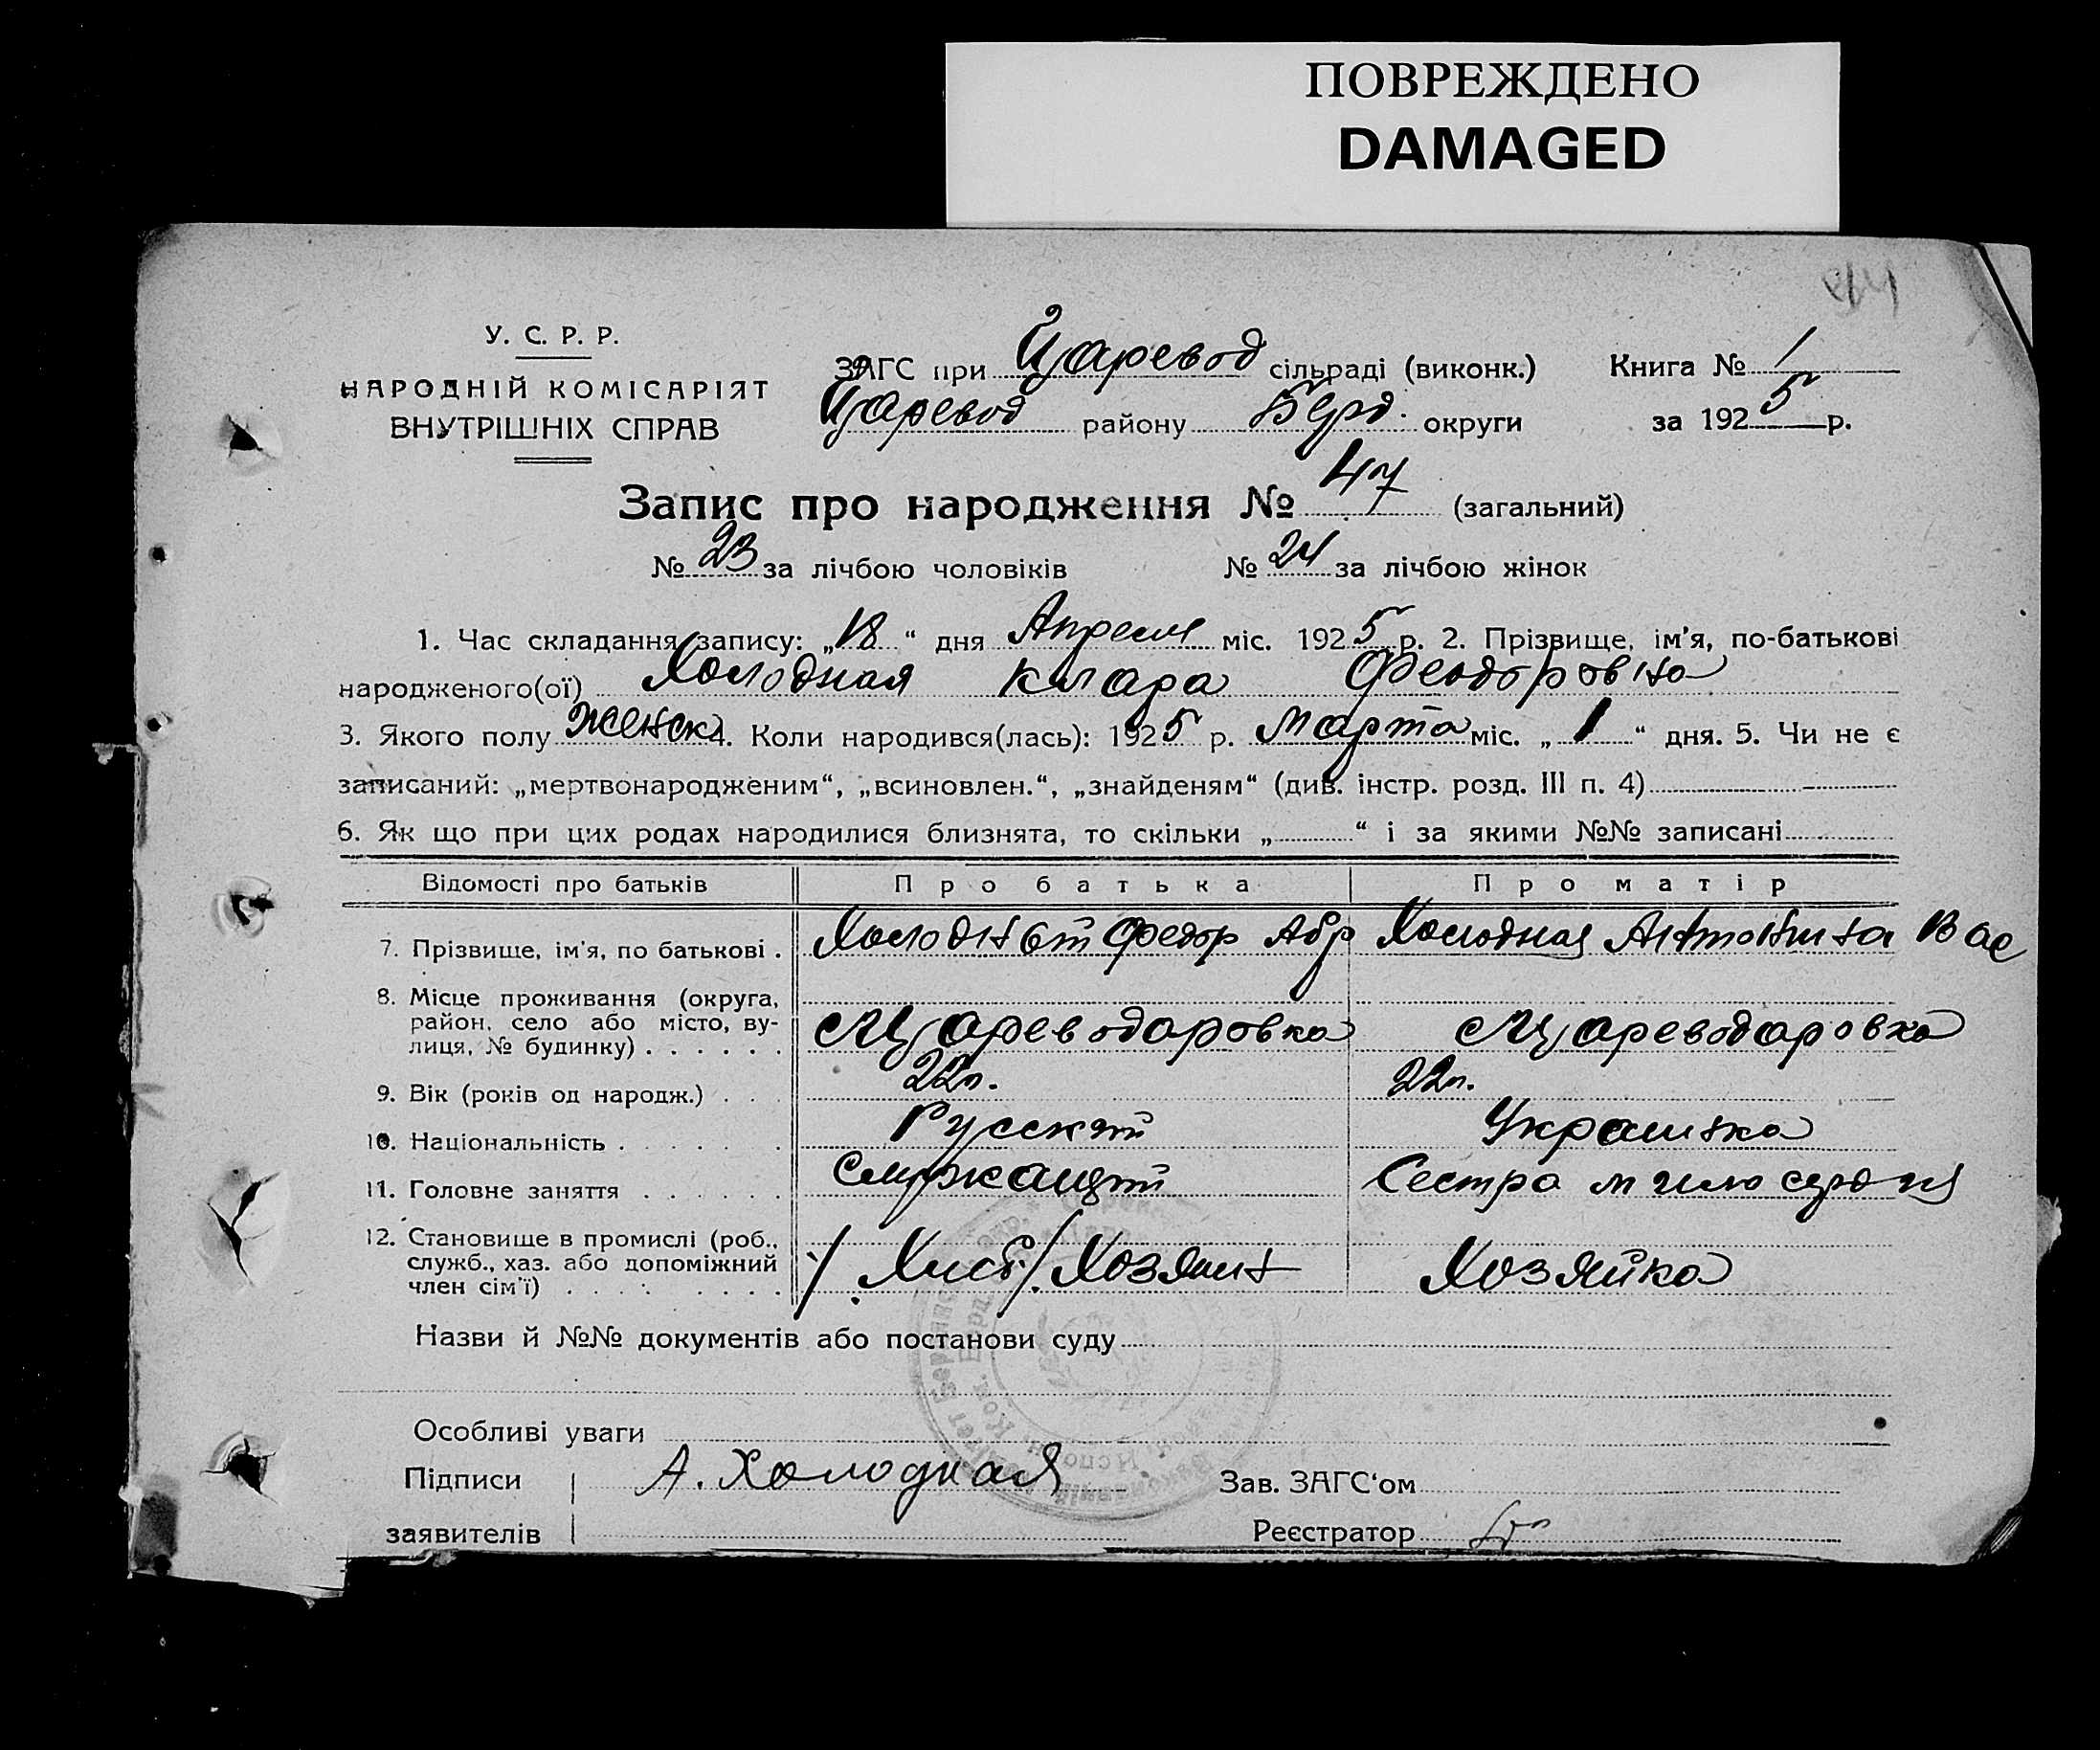 ПОВРЕЖДЕНО
DAMAGED
У. С. Р. Р.
НАРОДНІЙ КОМІСАРІЯТ
ВНУТРІШНІХ СПРАВ
ЗАГС при Царевод сільраді (виконк.) Книга № 1
Царевод району Берд. округи за 1925 р.
Запис про народження № 47 (загальний)
№ 23 за лічбою чоловіків № 24 за лічбою жінок
1. Час складання запису: „18“ дня Апреля міс. 1925 р. 2. Прізвище, ім'я, по-батькові
народженого(ої) Холодная Клара Феодоровна
3. Якого полу Женск. 4. Коли народився(лась): 1925 р. Марта міс. „1“ дня. 5. Чи не є
записаний: „мертвонародженим“, „всиновлен.“, „знайденям“ (див. інстр. розд. III п. 4)
6. Як що при цих родах народилися близнята, то скільки „ “ і за якими №№ записані
Відомості про батьків Про батька Про матір
7. Прізвище, ім'я, по батькові . Холодный Федор Абр Холодная Антонина Вас
8. Місце проживання (округа,
район, село або місто, ву-
лиця, № будинку) . . . . . . с Цареводаровка с Цареводаровка
9. Вік (років од народж.) . . . 22л. 22л.
10. Національність . . . . . . Русский Украинка
11. Головне заняття . . . . . . Служащий Сестра милосердия
12. Становище в промислі (роб.,
служб., хаз. або допоміжний
член сім'ї) . . . . . . . . Хозяин Хозяйка
Назви й №№ документів або постанови суду
Особливі уваги
Підписи А. Холодная Зав. ЗАГС'ом
заявителів Реєстратор